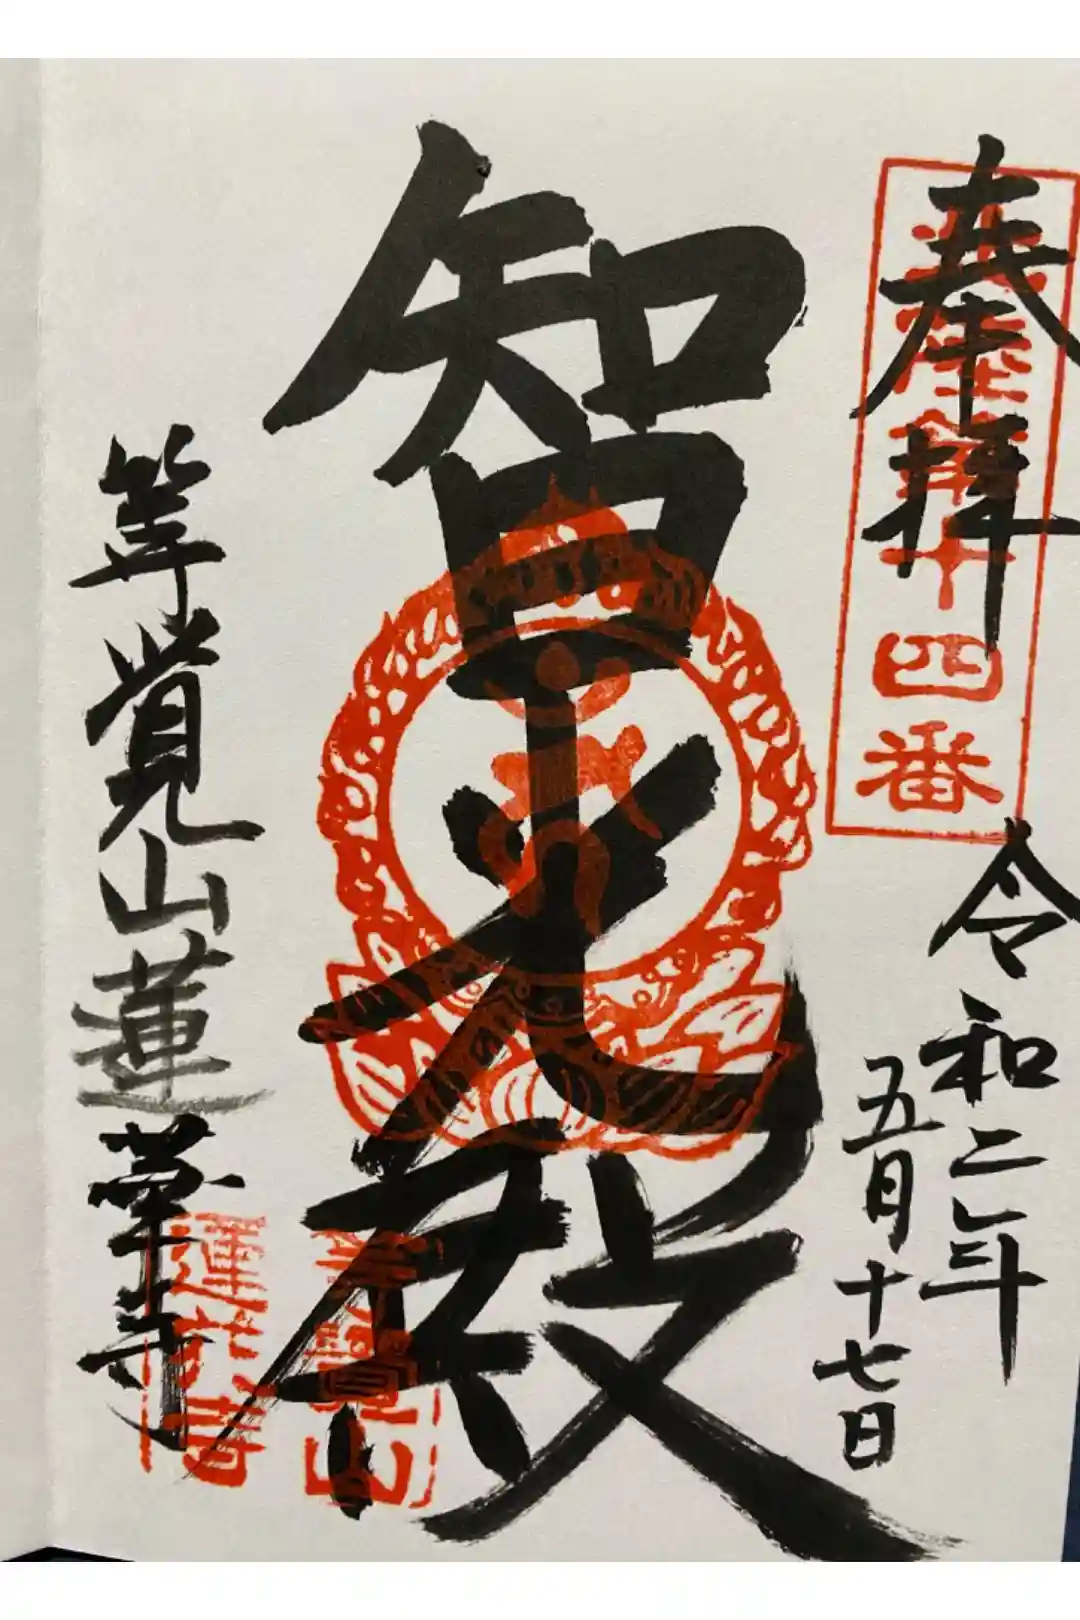 奉拝
第十四番
令和二年
五月十七日
智光殿
等覺山蓮華寺
等覺山
蓮華寺